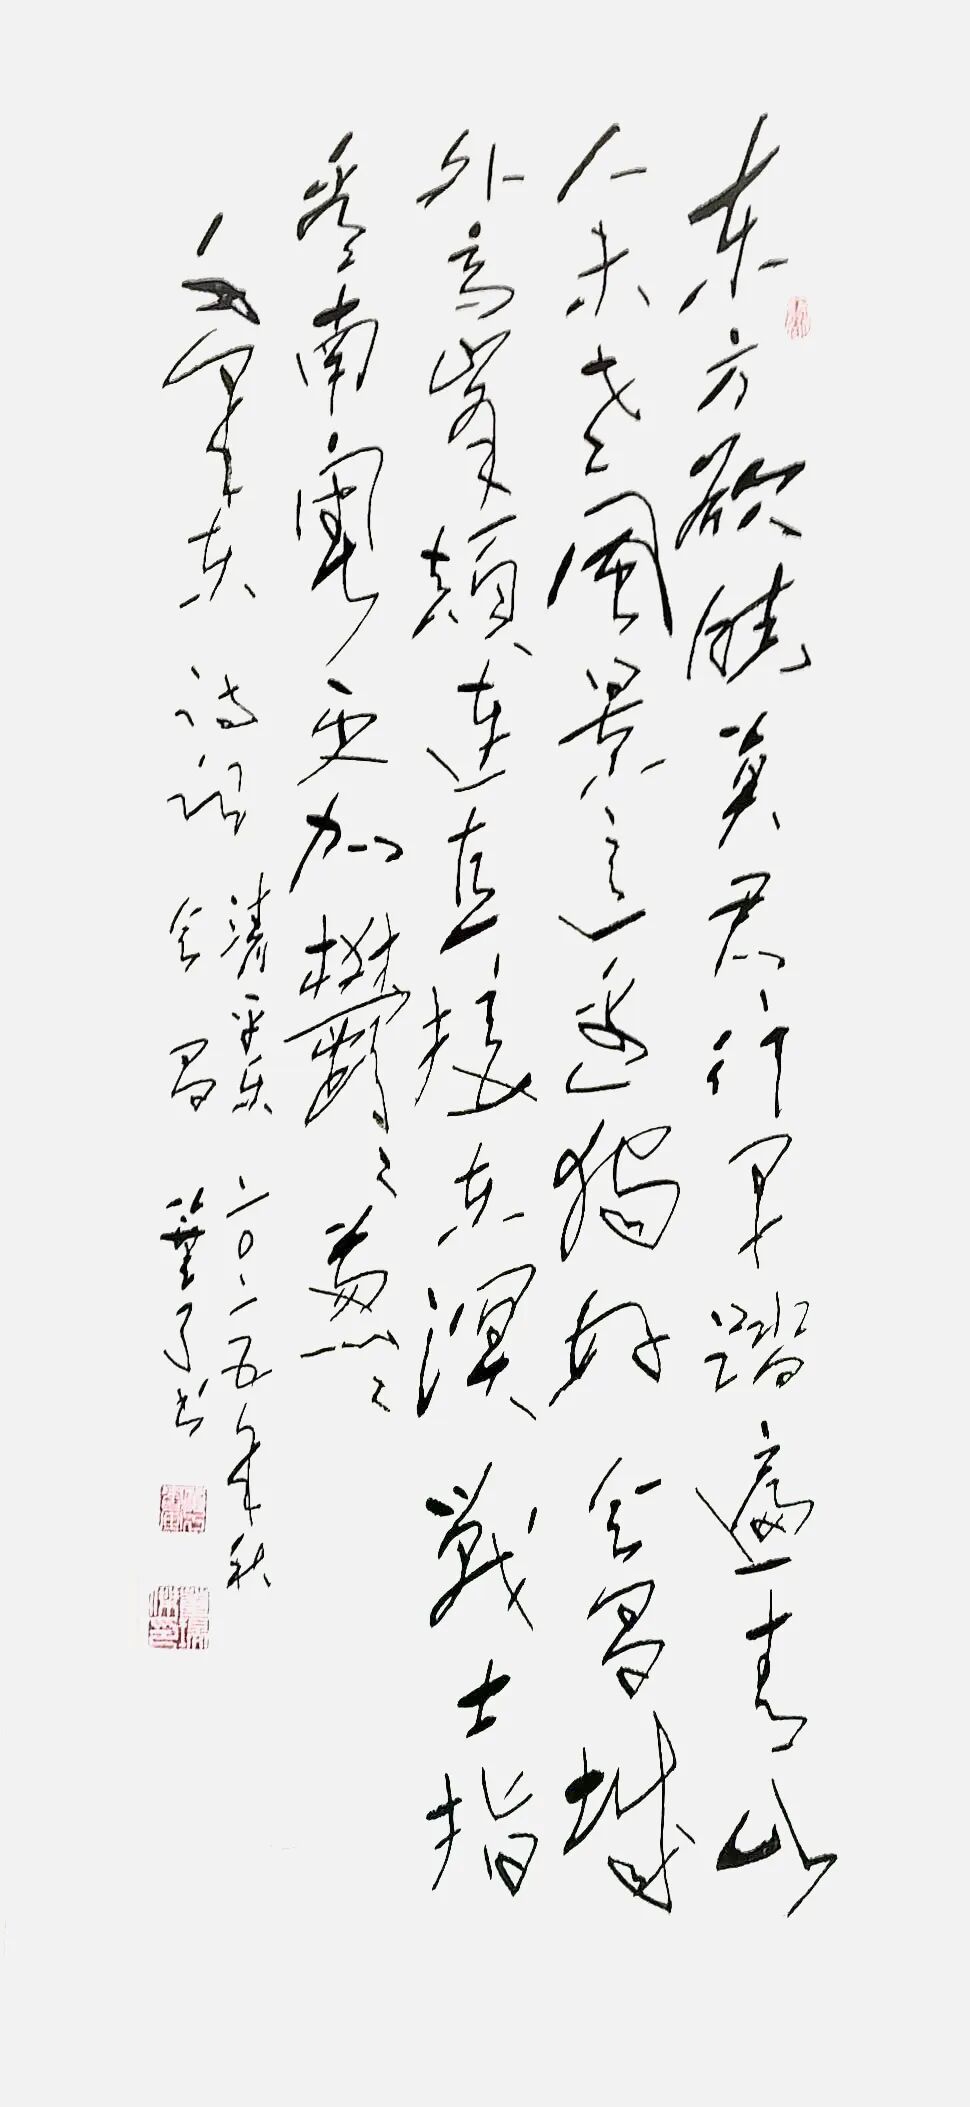 东方欲晓莫君行早踏遍青山
人未老风景这边独好会昌城
外高峰颠连直接东溟战士指
看南粤更加鬱々葱々
毛泽东诗词
清平乐
会昌
二〇一五年秋
书